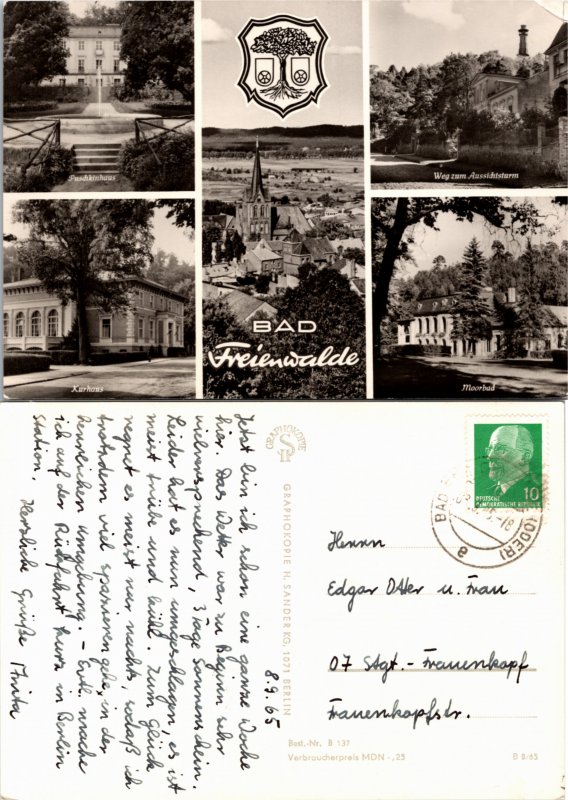 Puschkinhaus
Weg zum Aussichtsturm
BAD
Freienwalde
Kurhaus
Moorbad
8.9.65
Jetzt bin ich schon eine ganze Woche
hier. Das Wetter war zu Beginn sehr
vielversprechend, 3 Tage Sonnenschein.
Leider hat es nun umgeschlagen, es ist
meist trübe und kühl. Zum Glück
regnet es meist nur nachts, sodaß ich
trotzdem viel spazieren gehe, in der
Umgebung. – Evtl. mache
ich auf der Rückfahrt kurz in Berlin
Station.
Herzliche Grüße
GRAPHOKOPIE
GRAPHOKOPIE H. SANDER KG, 1071 BERLIN
DEUTSCHE
DEMOKRATISCHE REPUBLIK
10
BAD
(ODER)
a
Herrn
Edgar Otter u. Frau
07 Stgt.- Frauenkopf
Frauenkopfstr.
Best.-Nr. B 137
Verbraucherpreis MDN -,25
B 8/65